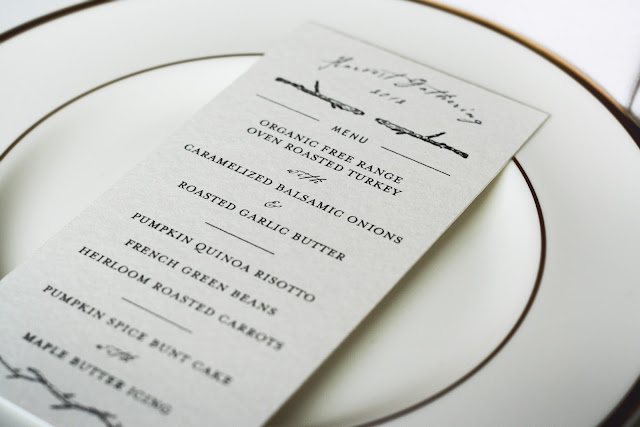 Harvest Gathering
2012
MENU
ORGANIC FREE RANGE
OVEN ROASTED TURKEY
with
CARAMELIZED BALSAMIC ONIONS
&
ROASTED GARLIC BUTTER
PUMPKIN QUINOA RISOTTO
FRENCH GREEN BEANS
HEIRLOOM ROASTED CARROTS
PUMPKIN SPICE BUNT CAKE
with
MAPLE BUTTER ICING